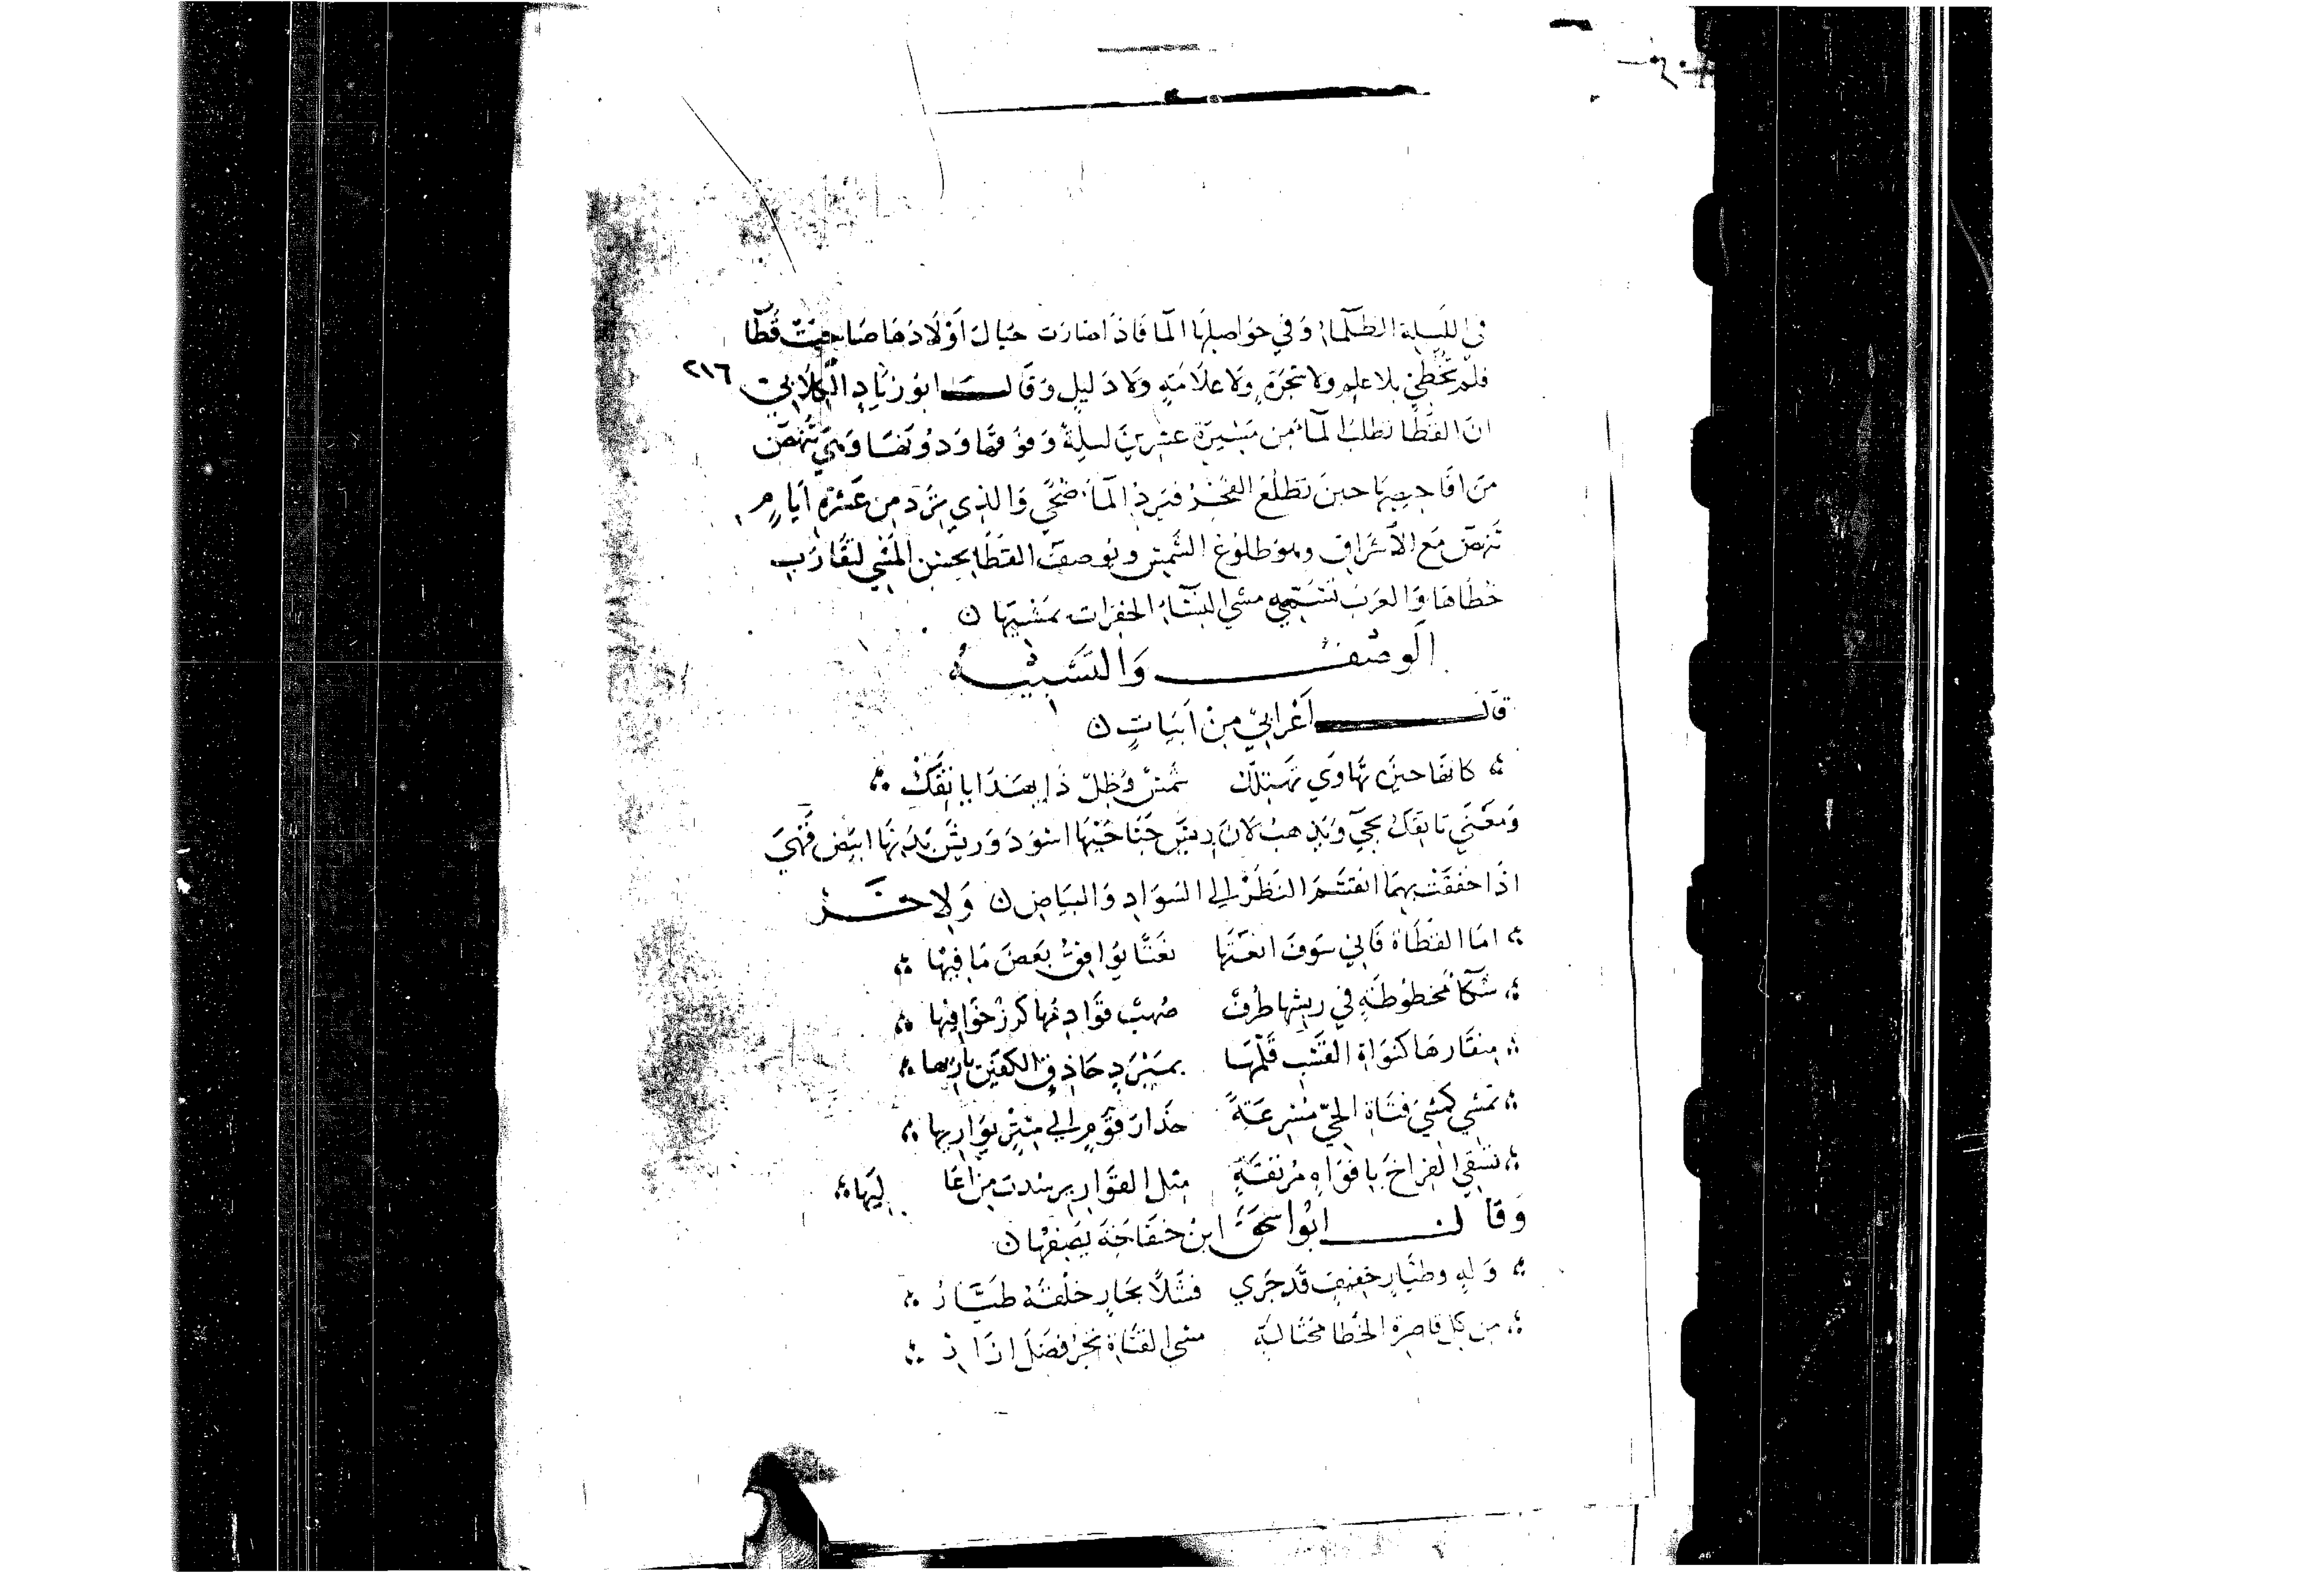 في الليلة الظلماء وفي حواصلها الما فاذا صارت حيال اولادها صاحت قطا قطا
فلم تخطئ بلا علم ولا شجرة ولا علامة ولا دليل وقال ابو زياد الكلابي
٢١٦
ان القطا تطلب الماء من مسيرة عشرين ليلة وفوقها ودونها وهي تنهض
من افاحيصها حين تطلع الفجر فترد الماء ضحى والذي يرد من عشرة ايام
تنهض مع الاشراق وهو طلوع الشمس وتوصف القطا بحسن المشي لتقارب
خطاها والعرب تشبه مشي النساء الخفرات بمشيتها ن
الوصف والتشبيه
قال اعرابي من ابيات ن
كانها حين تهاوى تهتلك شمس وظل ذا بهذا يأتفك
ومعنى يأتفك يجي ويذهب لان ريش جناحيها اسود وريش بدنها ابيض فهي
اذا خفقت بهما انقسم النظر الى السواد والبياض ن ولاخر
اما القطاة فاني سوف انعتها نعتا يوافق بعض ما فيها
سكاء مخطوطة في ريشها طرق صهب قوادمها كدر خوافيها
منقارها كنواة القسب قلمها بمبرد حاذق الكفين باريها
تمشي كمشي فتاة الحي مسرعة حذار قوم الى ستر يواريها
تسقي الفراخ بافواه مزينة مثل القوارير شدت من اعا ليها
وقال ابو اسحق ابن خفاجة يصفها ن
ولرب طيار خفيف قد جرى فشلا بجار خلفه طيار
من كل قاصرة الخطا مختالة مشي الفتاة تجر فضل ازار